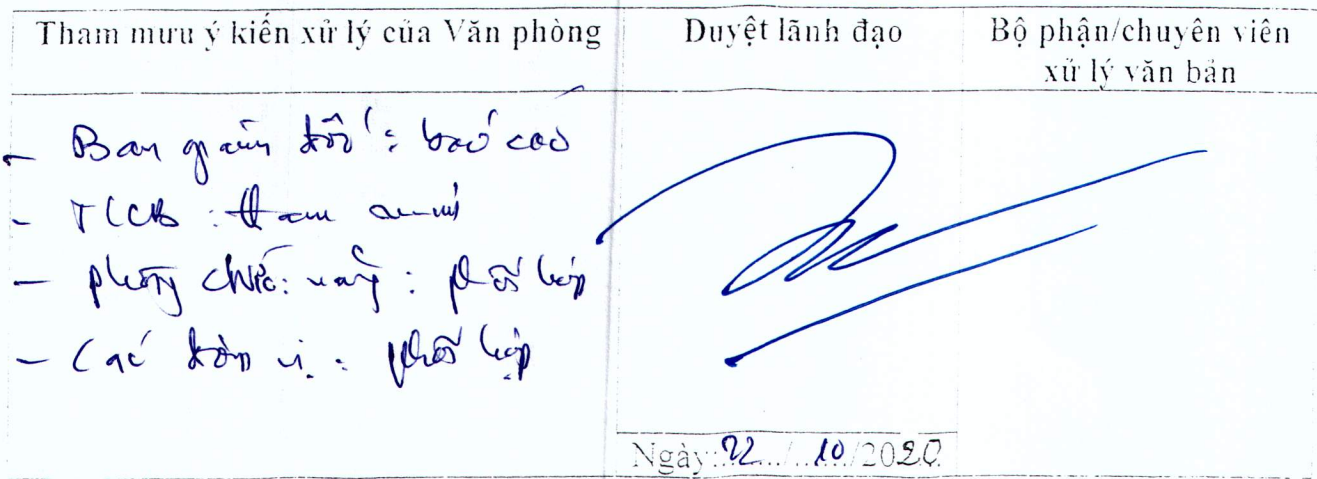 Tham mưu ý kiến xử lý của Văn phòng
Duyệt lãnh đạo
Bộ phận/chuyên viên
xử lý văn bản
- Ban giám đốc : báo cáo
- TCCB : tham mưu
- phòng chức năng : phối hợp
- Các đơn vị : phối hợp
Ngày: 22 / 10 /2020